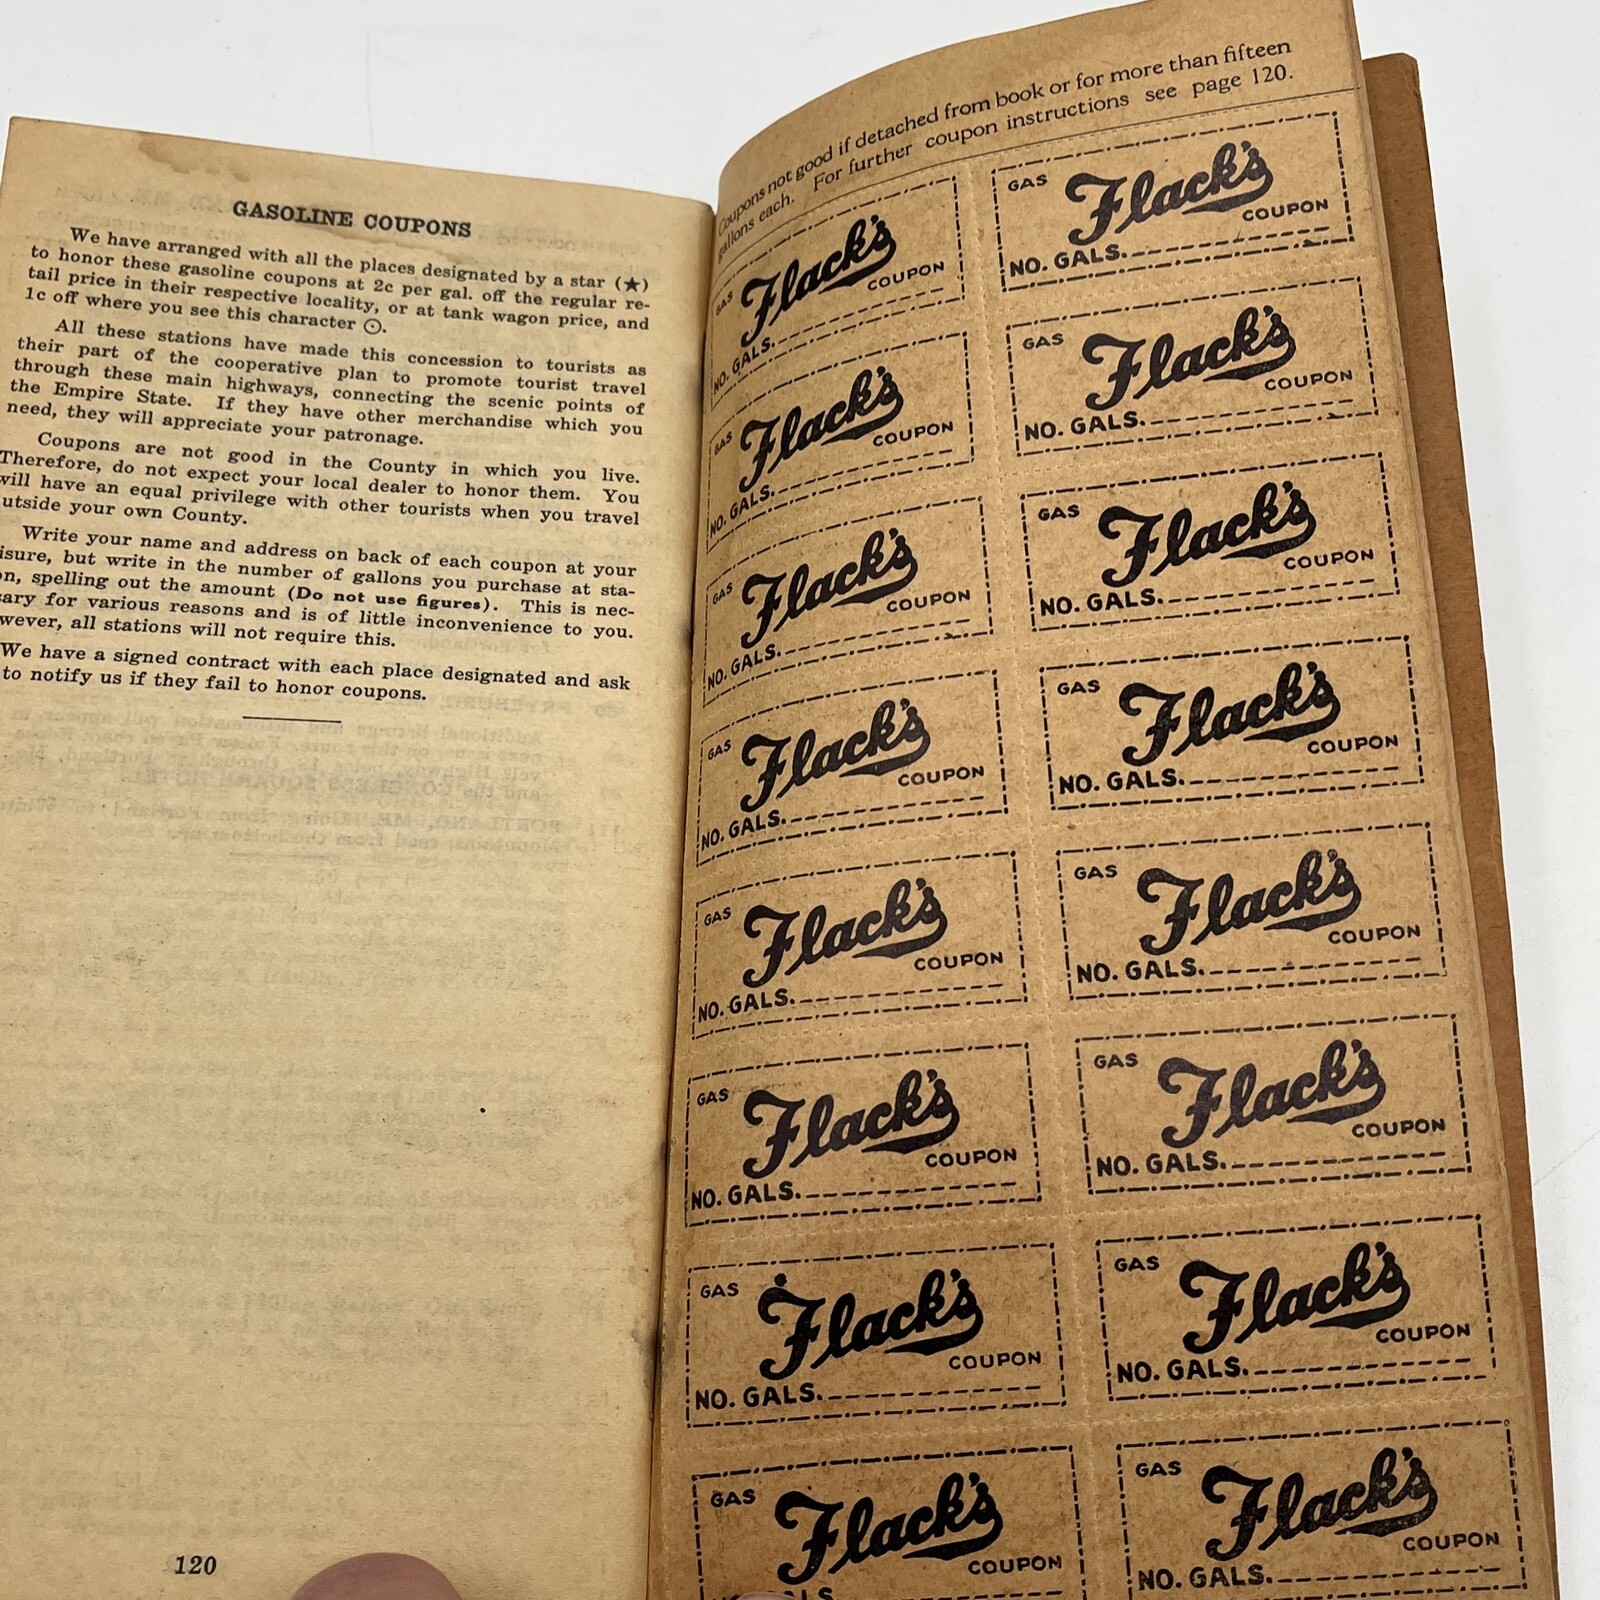 GASOLINE COUPONS
We have arranged with all the places designated by a star (★)
to honor these gasoline coupons at 2c per gal. off the regular re-
tail price in their respective locality, or at tank wagon price, and
1c off where you see this character ⊙.
All these stations have made this concession to tourists as
their part of the cooperative plan to promote tourist travel
through these main highways, connecting the scenic points of
the Empire State. If they have other merchandise which you
need, they will appreciate your patronage.
Coupons are not good in the County in which you live.
Therefore, do not expect your local dealer to honor them. You
will have an equal privilege with other tourists when you travel
utside your own County.
Write your name and address on back of each coupon at your
isure, but write in the number of gallons you purchase at sta-
on, spelling out the amount (Do not use figures). This is nec-
sary for various reasons and is of little inconvenience to you.
wever, all stations will not require this.
We have a signed contract with each place designated and ask
to notify us if they fail to honor coupons.
120
Coupons not good if detached from book or for more than fifteen
gallons each. For further coupon instructions see page 120.
GAS Flack's COUPON
NO. GALS.
GAS Flack's COUPON
NO. GALS.
GAS Flack's COUPON
NO. GALS.
GAS Flack's COUPON
NO. GALS.
GAS Flack's COUPON
NO. GALS.
GAS Flack's COUPON
NO. GALS.
GAS Flack's COUPON
NO. GALS.
GAS Flack's COUPON
NO. GALS.
GAS Flack's COUPON
NO. GALS.
GAS Flack's COUPON
NO. GALS.
GAS Flack's COUPON
NO. GALS.
GAS Flack's COUPON
NO. GALS.
GAS Flack's COUPON
NO. GALS.
GAS Flack's COUPON
NO. GALS.
GAS Flack's COUPON
LS
GAS Flack's COUPON
NO. GALS.